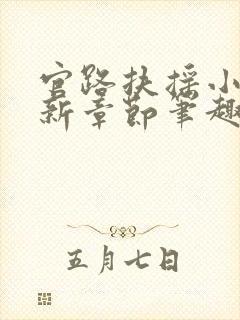 官路扶摇小
新章节笔趣
五月七日